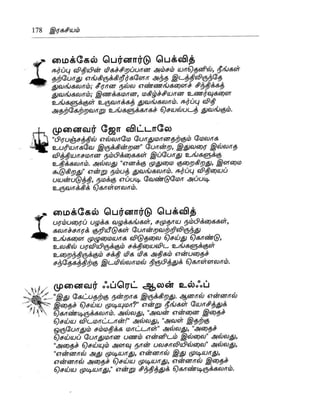 178 இரகசியம்
மைக்கேல் பெர்னார்டு பெக்வித்
ஈர்ப்பு விதியின் மிகச்சிறப்பான அம்சம் யாதெனில், நீங்கள்
தற்போது எங்கிருக்கிறீர்களோ அந்த இடத்திலிருந்தே
துவங்கலாம்; சீரான நல்ல எண்ணங்களைச் சிந்திக்கத்
துவங்கலாம்; இணக்கமான, மகிழ்ச்சியான உணர்வுகளை
உங்களுக்குள் உருவாக்கத் துவங்கலாம். ஈர்ப்பு விதி
அதற்கேற்றவாறு உங்களுக்காகச் செயல்படத் துவங்கும்.
முனைவர் ஜோ விட்டாலே
"பிரபஞ்சத்தில் எல்லாமே போதுமானதற்கும் மேலாக
உபரியாகவே இருக்கின்றன" போன்ற, இதுவரை இல்லாத
வித்தியாசமான நம்பிக்கைகள் இப்போது உங்களுக்கு
உதிக்கலாம். அல்லது "எனக்கு முதுமை குறைகிறது, இளமை
கூடுகிறது" என்று நம்பத் துவங்கலாம். ஈர்ப்பு விதியைப்
பயன்படுத்தி, நமக்கு எப்படி வேண்டுமோ அப்படி
உருவாக்கிக் கொள்ளலாம்.
மைக்கேல் பெர்னார்டு பெக்வித்
பரம்பரைப் பழக்க வழக்கங்கள், சமுதாய நம்பிக்கைகள்,
கலாச்சாரக் குறியீடுகள் போன்றவற்றிலிருந்து
உங்களை முழுமையாக விடுதலை செய்து கொண்டு,
உலகில் பரவியிருக்கும் சக்தியைவிட உங்களுக்குள்
உறைந்திருக்கும் சக்தி மிக மிக அதிகம் என்பதைச்
சந்தேகத்திற்கு இடமில்லாமல் நிரூபித்துக் கொள்ளலாம்.
முனைவர் ஃப்ரெட் ஆலன் உல்ஃப்
"இது கேட்பதற்கு நன்றாக இருக்கிறது. ஆனால் என்னால்
இதைச் செய்ய முடியுமா?" என்று நீங்கள் யோசித்துக்
கொண்டிருக்கலாம். அல்லது, "அவள் என்னை இதைச்
செய்ய விடமாட்டாள்!" அல்லது, "அவள் இதற்கு
ஒருபோதும் சம்மதிக்க மாட்டாள்" அல்லது, "அதைச்
செய்யப் போதுமான பணம் என்னிடம் இல்லை" அல்லது,
"அதைச் செய்யும் அளவு நான் பலசாலியில்லை" அல்லது,
"என்னால் அது முடியாது, என்னால் இது முடியாது,
என்னால் அதைச் செய்ய முடியாது, என்னால் இதைச்
செய்ய முடியாது," என்று சிந்தித்துக் கொண்டிருக்கலாம்.